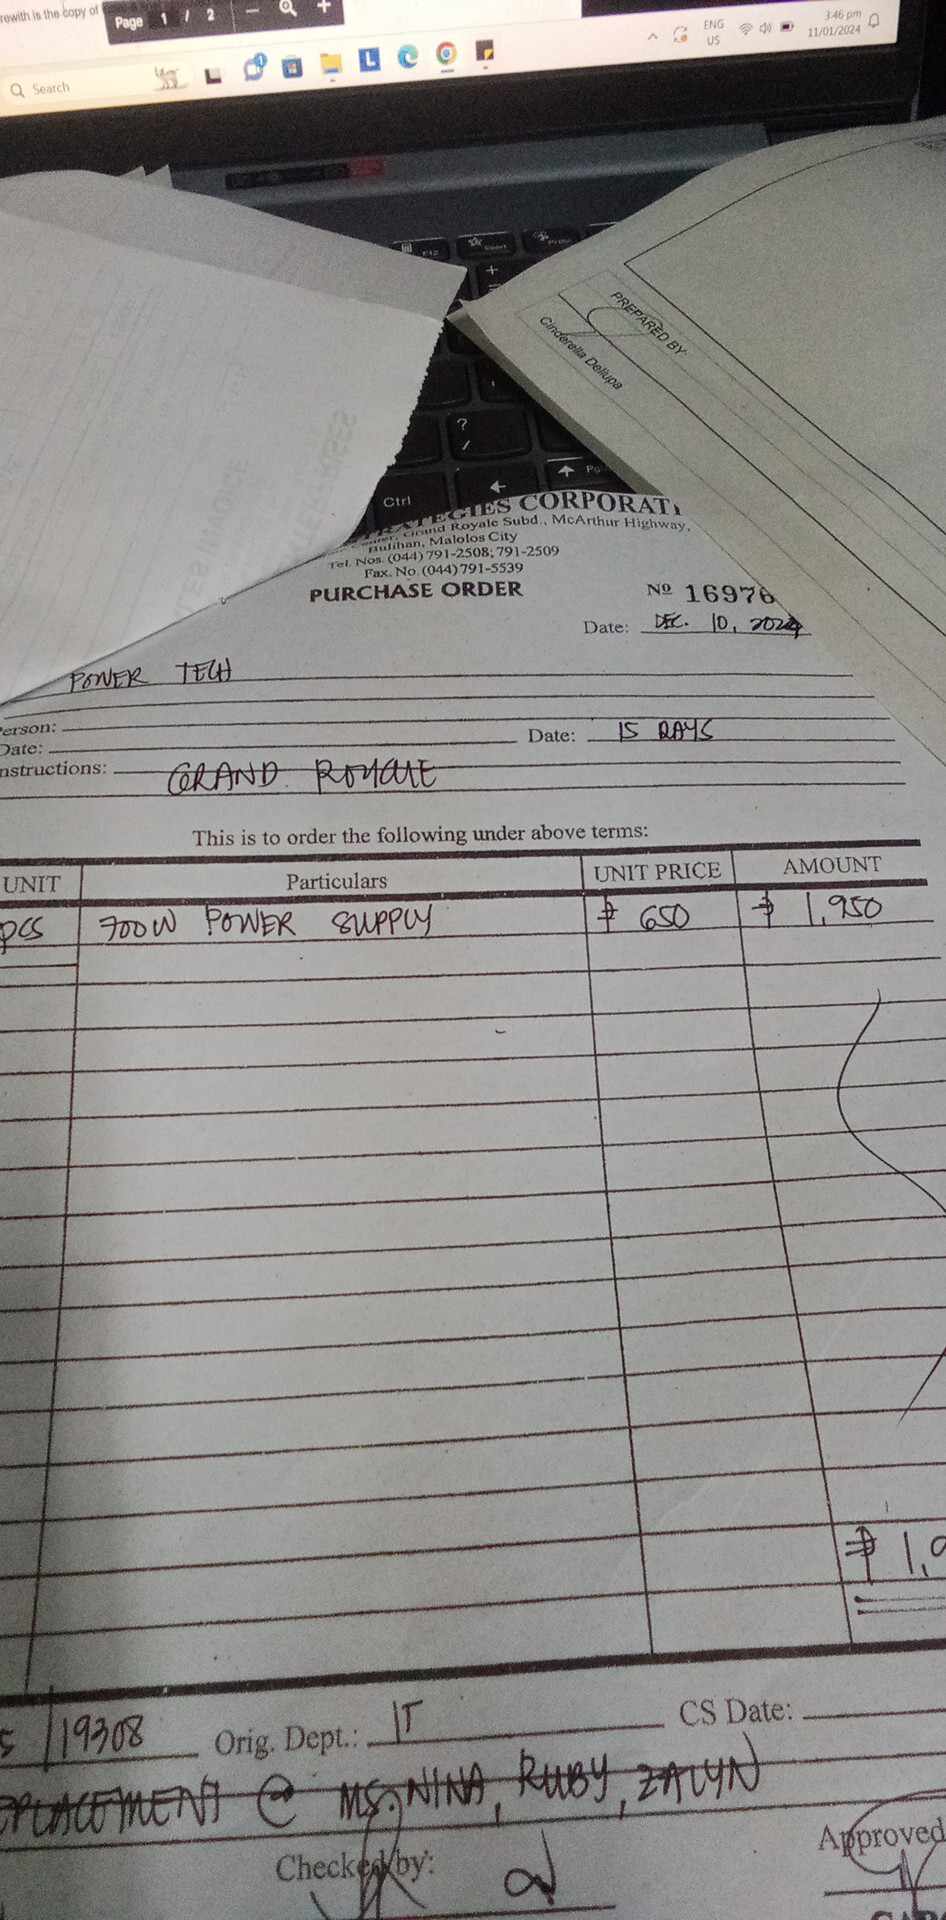 rewith is the copy of
Page 1 / 2 — +
Search
ENG
US
3:46 pm
11/01/2024
PREPARED BY:
Cinderella Dellupa
?
/
Ctrl
CORPORAT
Royale Subd., McArthur Highway,
Bulihan, Malolos City
Tel. Nos. (044) 791-2508; 791-2509
Fax. No. (044) 791-5539
PURCHASE ORDER
Nº 16976
Date: DEC. 10, 2024
POWER TECH
erson:
Date:
Date: 15 DAYS
nstructions: GRAND ROYALE
This is to order the following under above terms:
UNIT Particulars UNIT PRICE AMOUNT
pcs 700W POWER SUPPLY ₱ 650 ₱ 1,950
₱ 1,9
5 /19308 Orig. Dept.: IT CS Date:
EPLACEMENT @ MS. NINA, RUBY, ZALYN
Checked by:
Approved